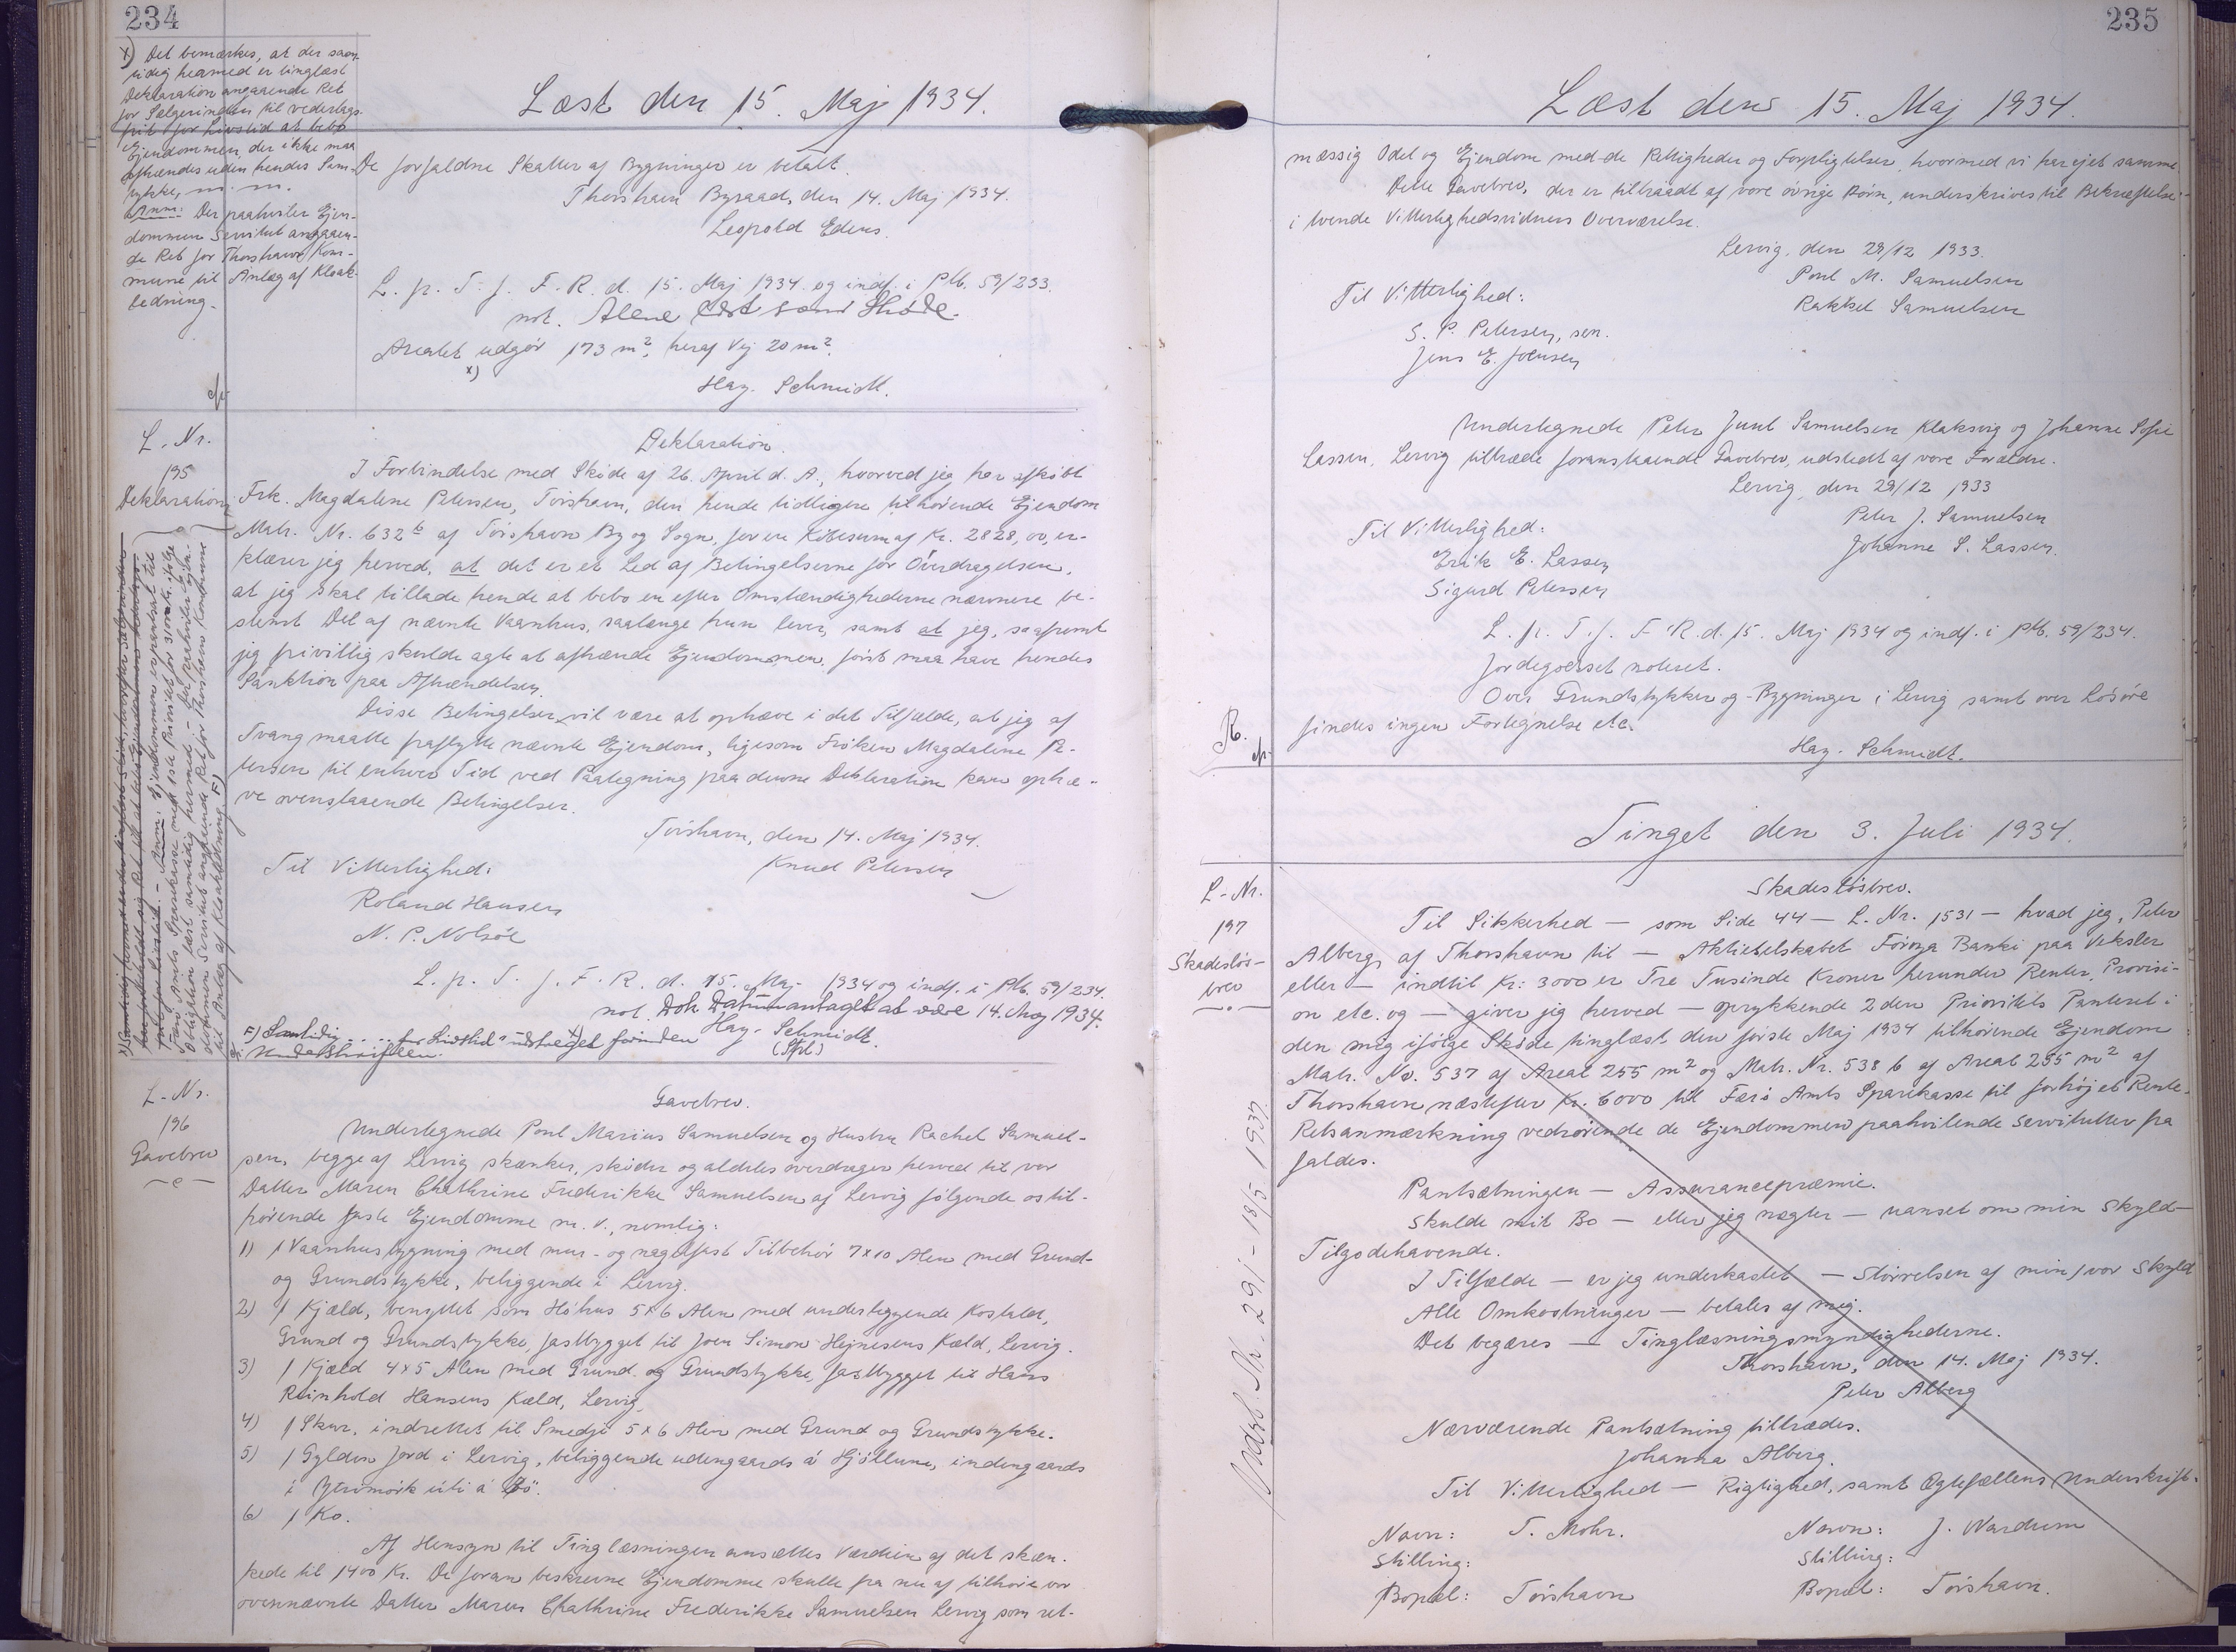 234
x) Det bemærkes, at der sam-
tidig hermed er tinglæst
Deklaration angaaende Ret
for Sælgerinden til vederlags-
frit for Livstid at bebo
Ejendommen, der ikke maa
afhændes uden hendes Sam-
tykke, m. m.
Anm: Der paahviler Ejen-
dommen Servitut angaaen-
de Ret for Thorshavn Kom-
mune til Anlæg af Kloak-
ledning.
Læst den 15. Maj 1934.
De forfaldne Skatter af Bygninger er betalt.
Thorshavn Byraad, den 14. Maj 1934.
Leopold Edens.
L. p. T. f. F. R. d. 15. Maj 1934 og indf. i Ptb. 59/233.
not. Alene som Skøde.
Arealet udgør 173 m², heraf Vej 20 m².
x)
Hay. Schmidt.
L. Nr.
195
Deklaration
Deklaration.
I Forbindelse med Skøde af 26. April d. A., hvorved jeg har afkøbt
Frk. Magdalene Petersen, Tórshavn, den hende tidligere tilhørende Ejendom
Matr. Nr. 632 b af Tórshavn By og Sogn, for en Købesum af Kr. 2828,00, er-
klærer jeg herved, at det er et Led af Betingelserne for Overdragelsen,
at jeg skal tillade hende at bebo en efter Omstændighederne nærmere be-
stemt Del af nævnte Vaanhus, saalænge hun lever, samt at jeg, saafremt
jeg frivillig skulde agte at afhænde Ejendommen, først maa have hendes
Sanktion paa Afhændelsen.
Disse Betingelser vil være at ophæve i det Tilfælde, at jeg af
Tvang maatte fraflytte nævnte Ejendom, ligesom Frøken Magdalene Pe-
tersen til enhver Tid ved Paategning paa denne Deklaration kan ophæ-
ve ovenstaaende Betingelser.
Tórshavn, den 14. Maj 1934.
Til Vitterlighed:
Knud Petersen
Roland Hansen
N. P. Nolsöe
L. p. T. f. F. R. d. 15. Maj 1934 og indf. i Ptb. 59/234.
not. Dok Datum antaget at være 14. Maj 1934.
Hay. Schmidt.
(Spl.)
F) Samtidig . . . . for Livstid" udslettet forinden
Underskriften.
Anm: Ejendommen er pantsat til
Færø Amts Sparekasse med 1ste Prioritet for
Obligation læst samtidig hermed - Der paahviler Ejen-
dommen Servitut angaaende Ret for Thorshavn Kommune
til Anlæg af Kloakledning. F)
L. Nr.
196
Gavebrev
Gavebrev.
Undertegnede Poul Marius Samuelsen og Hustru Rachel Samuel-
sen, begge af Lervig skænker, skøder og aldeles overdrager herved til vor
Datter Maren Chathrine Frederikke Samuelsen af Lervig følgende os til-
hørende faste Ejendomme m. v., nemlig:
1) 1 Vaanhusbygning med mur- og nagelfast Tilbehør 7x10 Alen med Grund-
og Grundstykke, beliggende i Lervig.
2) 1 Kjæld, benyttet som Høhus 5x6 Alen med underliggende Kostald,
Grund og Grundstykke, fastbygget til Joen Simon Hejnesens Kæld, Lervig.
3) 1 Kjæld 4x5 Alen med Grund og Grundstykke, fastbygget til Hans
Reinhold Hansens Kæld, Lervig.
4) 1 Skur, indrettet til Smedje 5x6 Alen med Grund og Grundstykke.
5) 1 Gylden Jord i Lervig, beliggende udengaards á Hjøllum, indengaards
i úti á Bø.
6) 1 Ko.
Af Hensyn til Tinglæsningen ansættes Værdien af det skæn-
kede til 1400 Kr. De foran beskrevne Ejendomme skulle fra nu af tilhøre vor
ovennævnte Datter Maren Chathrine Frederikke Samuelsen Lervig som ret-
235
Læst den 15. Maj 1934.
mæssig Odel og Ejendom med de Rettigheder og Forpligtelser, hvormed vi har ejet samme.
Dette Gavebrev, der er tiltraadt af vore øvrige Børn, underskrives til Bekræftelse
i tvende Vitterlighedsvidners Overværelse.
Lervig, den 29/12 1933.
Til Vitterlighed:
Poul M. Samuelsen
Rakkel Samuelsen
S. P. Petersen, sen.
Jens E. Joensen
Undertegnede Peter Juul Samuelsen Klaksvig og Johanne Sofie
Lassen, Lervig tiltræde foranstaaende Gavebrev, udstedt af vore Forældre.
Lervig, den 29/12 1933
Til Vitterlighed:
Peter J. Samuelsen
Johanne S. Lassen.
Erik E. Lassen
Sigurd Petersen
L. p. T. f. F. R. d. 15. Maj 1934 og indf. i Ptb. 59/234.
Jordegodset noteret.
Over Grundstykker og Bygninger i Lervig samt over Løsøre
findes ingen Fortegnelse etc.
Hay. Schmidt.
R.
Tinget den 3. Juli 1934.
L. Nr.
197
Skadesløs-
brev
Skadesløsbrev.
Til Sikkerhed — som Side 44 — L. Nr. 1531 — hvad jeg, Peter
Alberg, af Thorshavn til — Aktieselskabet Føroya Banki paa Veksler
eller — indtil Kr: 3000 er Tre Tusinde Kroner herunder Renter, Provisi-
on etc. og — giver jeg herved — oprykkende 2den Prioritets Panteret i
den mig ifølge Skøde tinglæst den første Maj 1934 tilhørende Ejendom
Matr. No. 537 af Areal 255 m² og Matr. Nr. 538 b af Areal 255 m² af
Thorshavn næstefter Kr. 6000 til Færø Amts Sparekasse til forhøjet Rente.
Retsanmærkning vedrørende de Ejendommen paahvilende Servitutter fra
faldes.
Pantsætningen — Assurancepræmie.
Skulde mit Bo — eller jeg nægter — uanset om min Skyld—
Tilgodehavende.
I Tilfælde — er jeg underkastet — Størrelsen af min/vor Skyld
Alle Omkostninger — betales af mig.
Det begæres — Tinglæsningsmyndighederne.
Thorshavn, den 14. Maj 1934.
Peter Alberg
Nærværende Pantsætning tiltrædes.
Johanna Alberg.
Til Vitterlighed — Rigtighed, samt Ægtefællens Underskrift.
Navn: T. Mohr. Navn: J. Wardum
Stilling: Stilling:
Bopæl: Tórshavn Bopæl: Tórshavn.
Udsl. Tb. 291 - 18/5 1937.